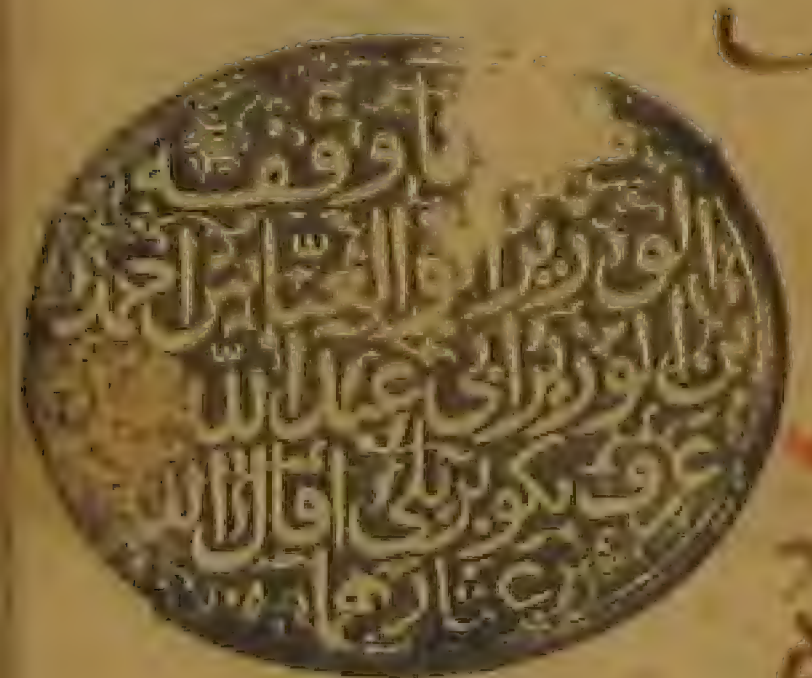 هذا ما وقفه
الوزير ابو العباس احمد
بن الوزير ابي عبد الله
عرف بكوبريلي اقال الله
عثارهما